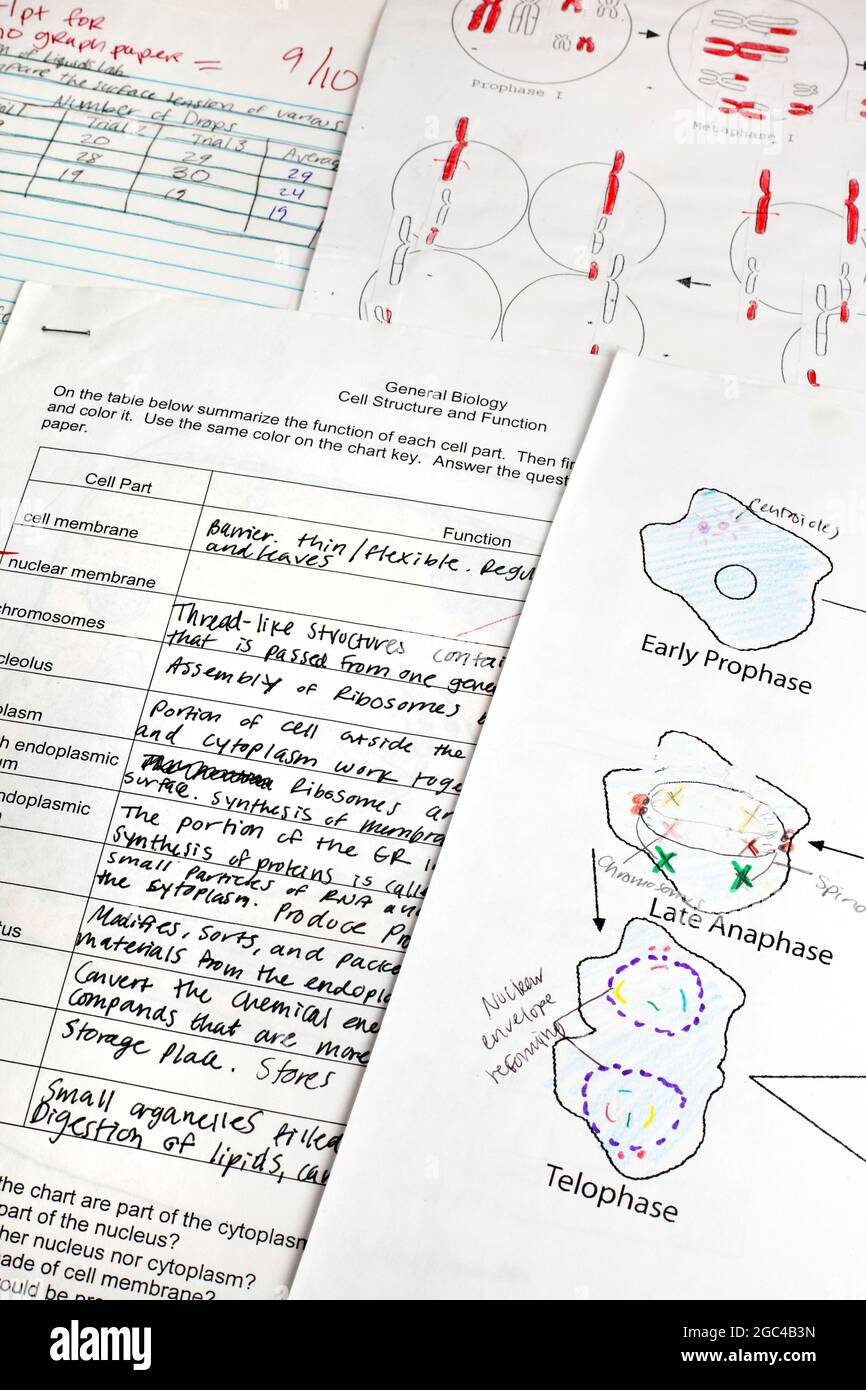 -1pt for
no graph paper = 9/10
of Liquids Lab
the surface tension of various
Number of Drops
Trial 2 Trial 3
20 29 29
28 30 24
19 19 19
Prophase I
Metaphase I
General Biology
Cell Structure and Function
On the table below summarize the function of each cell part. Then
and color it. Use the same color on the chart key. Answer the
paper.
Cell Part
Function
cell membrane
Barrier. thin/flexible.
and leaves
nuclear membrane
Thread-like structures
that is passed from one
Assembly of Ribosomes
Portion of cell outside the
and cytoplasm work
endoplasmic
Ribosomes
surface. synthesis of
The portion of the ER
synthesis of proteins is
small particles of RNA
the cytoplasm. Produce
Modifies, sorts, and
materials from the
Convert the chemical
compands that are more
Storage place. Stores
Small organelles filled
Digestion of lipids,
the chart are part of the cytoplasm
part of the nucleus?
nucleus nor cytoplasm?
of cell membrane?
be
Centrioles
Early Prophase
Chromosomes
Late Anaphase
Nuclear
envelope
reforming
Telophase
alamy
Image ID: 2GC4B3N
www.alamy.com